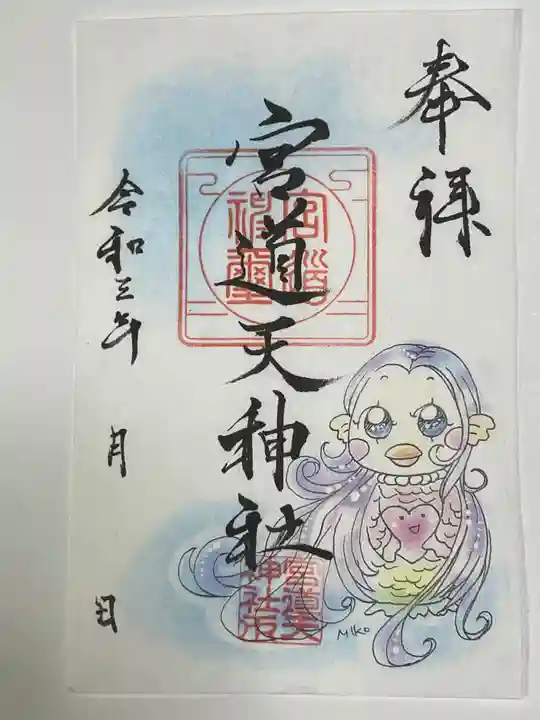 奉拝
宮道天神社
令和三年
月
日
宮道
神璽
宮道天
神社印
MIKO